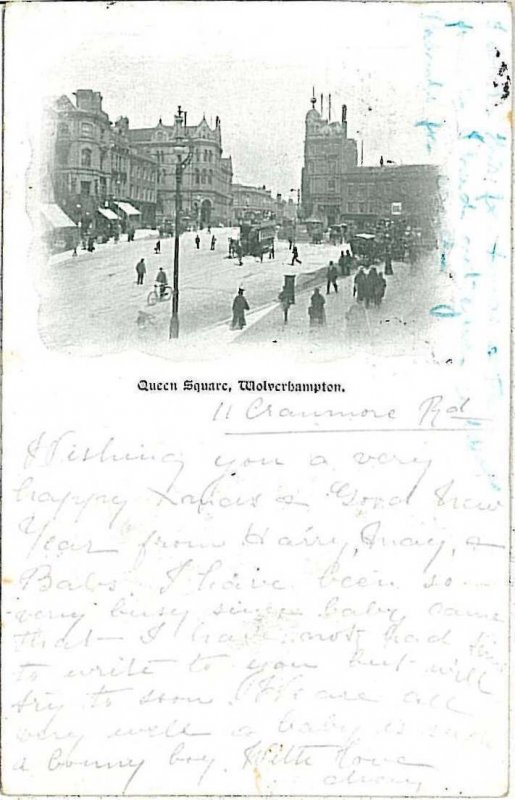 Queen Square, Wolverhampton.
11 Cranmore Rd
Wishing you a very
happy Xmas & Good New
Year from Harry, May, &
Babs. I have been so
very busy since baby came
that I have not had time
to write to you but will
try to soon. We are all
very well & baby is such
a bonny boy. With love
May